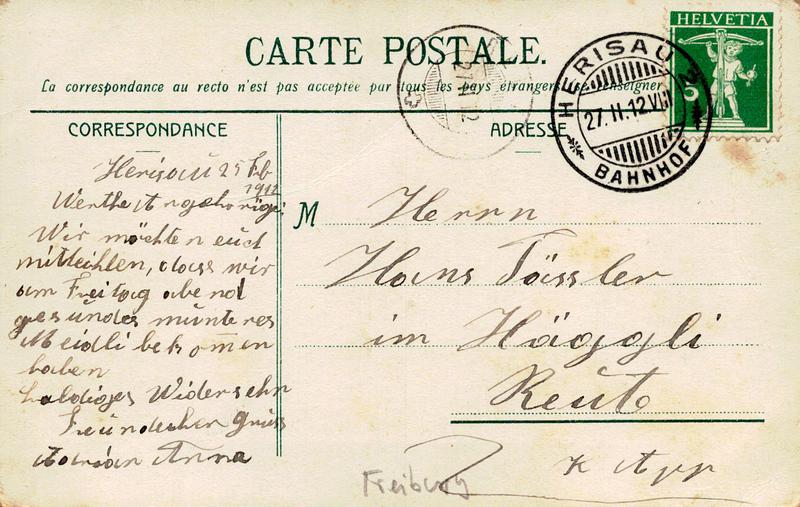 CARTE POSTALE.
La correspondance au recto n'est pas acceptée par tous les pays étrangers se renseigner
HELVETIA
5
HERISAU 3
27.II.12.VIII
BAHNHOF
27.II.12
CORRESPONDANCE
ADRESSE
Herisaú 25 Feb
1912
Werthe Angehörige
Wir möchten eúch
mitteihlen, dass wir
am Freitag abend
gesúndes múnteres
Meidli bekomen
haben
baldiges Widersehn
Freúndlicher Grúss
Anna
M
Herrn
Hans Tässler
im Häggli
Reút
K App
Freiburg